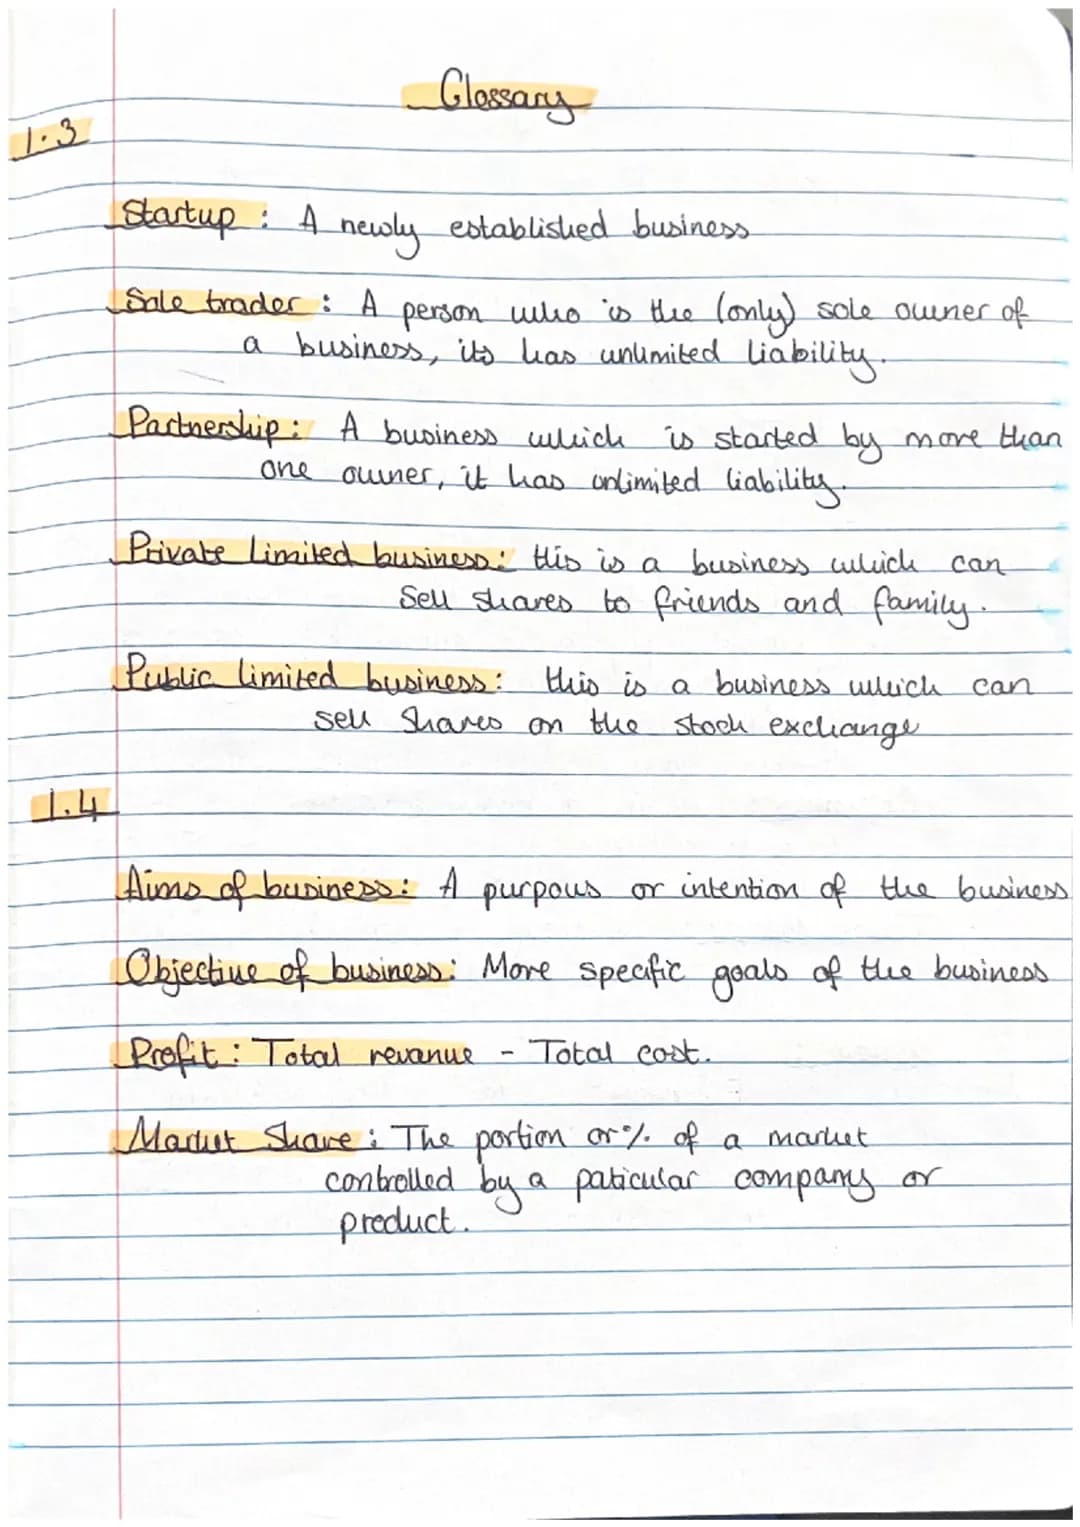 Glossary
1.3
Startup : A newly established business
Sole trader : A person who is the (only) sole owner of
a business, its has unlimited liability.
Partnership : A business which is started by more than
one owner, it has unlimited liability.
Private limited business: this is a business which can
Sell shares to friends and family.
Public limited business: this is a business which can
sell shares on the stock exchange
1.4
Aims of business: A purpous or intention of the business
Objective of business: More specific goals of the business
Profit : Total revanue - Total cost.
Market Share : The portion or % of a market
controlled by a paticular company or
product.